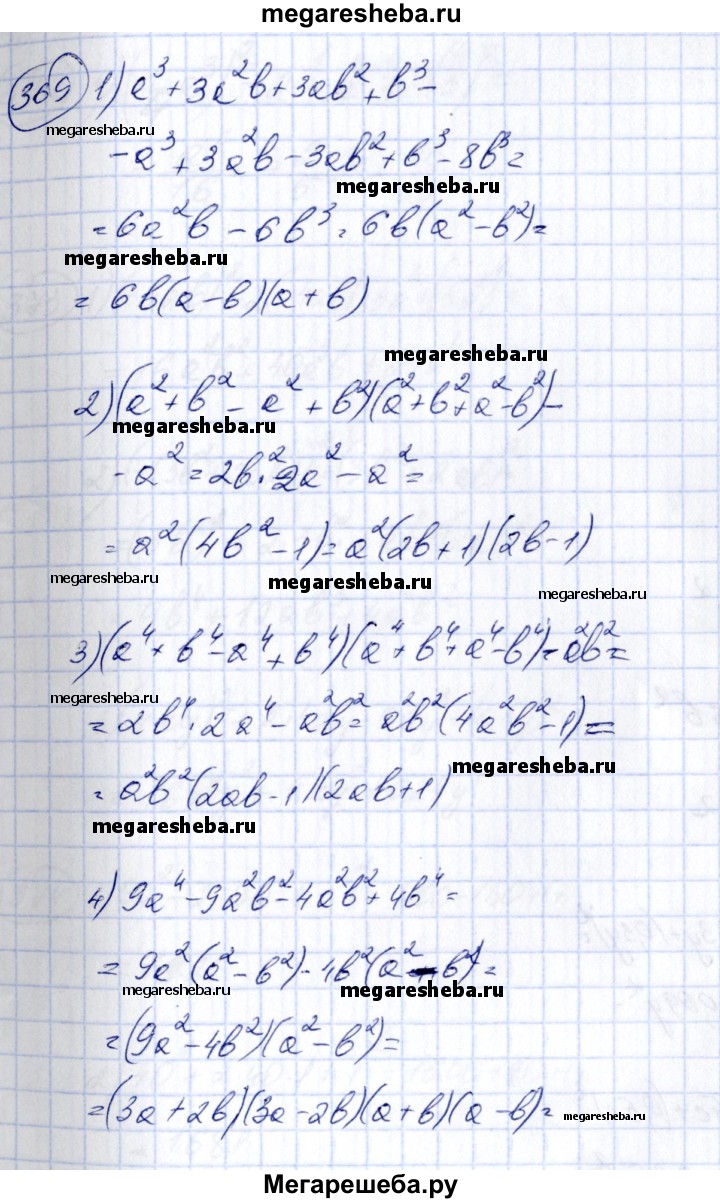 megaresheba.ru
369 1) a³+3a²b+3ab²+b³-
megaresheba.ru
-a³+3a²b-3ab²+b³-8b³=
megaresheba.ru
=6a²b-6b³=6b(a²-b²)=
megaresheba.ru
=6b(a-b)(a+b)
megaresheba.ru
2)(a²+b²-a²+b²)(a²+b²+a²-b²)-
megaresheba.ru
-a²=2b·2a²-a²=
=a²(4b²-1)=a²(2b+1)(2b-1)
megaresheba.ru megaresheba.ru megaresheba.ru
3)(a⁴+b⁴-a⁴+b⁴)(a⁴+b⁴+a⁴-b⁴)-a²b²=
megaresheba.ru
=2b⁴·2a⁴-a²b²=a²b²(4a²b²-1)=
megaresheba.ru
=a²b²(2ab-1)(2ab+1)
megaresheba.ru
4) 9a⁴-9a²b²-4a²b²+4b⁴=
=9a²(a²-b²)-4b²(a²-b²)=
megaresheba.ru megaresheba.ru
=(9a²-4b²)(a²-b²)=
megaresheba.ru
=(3a+2b)(3a-2b)(a+b)(a-b)=
megaresheba.ru
Мегарешеба.ру